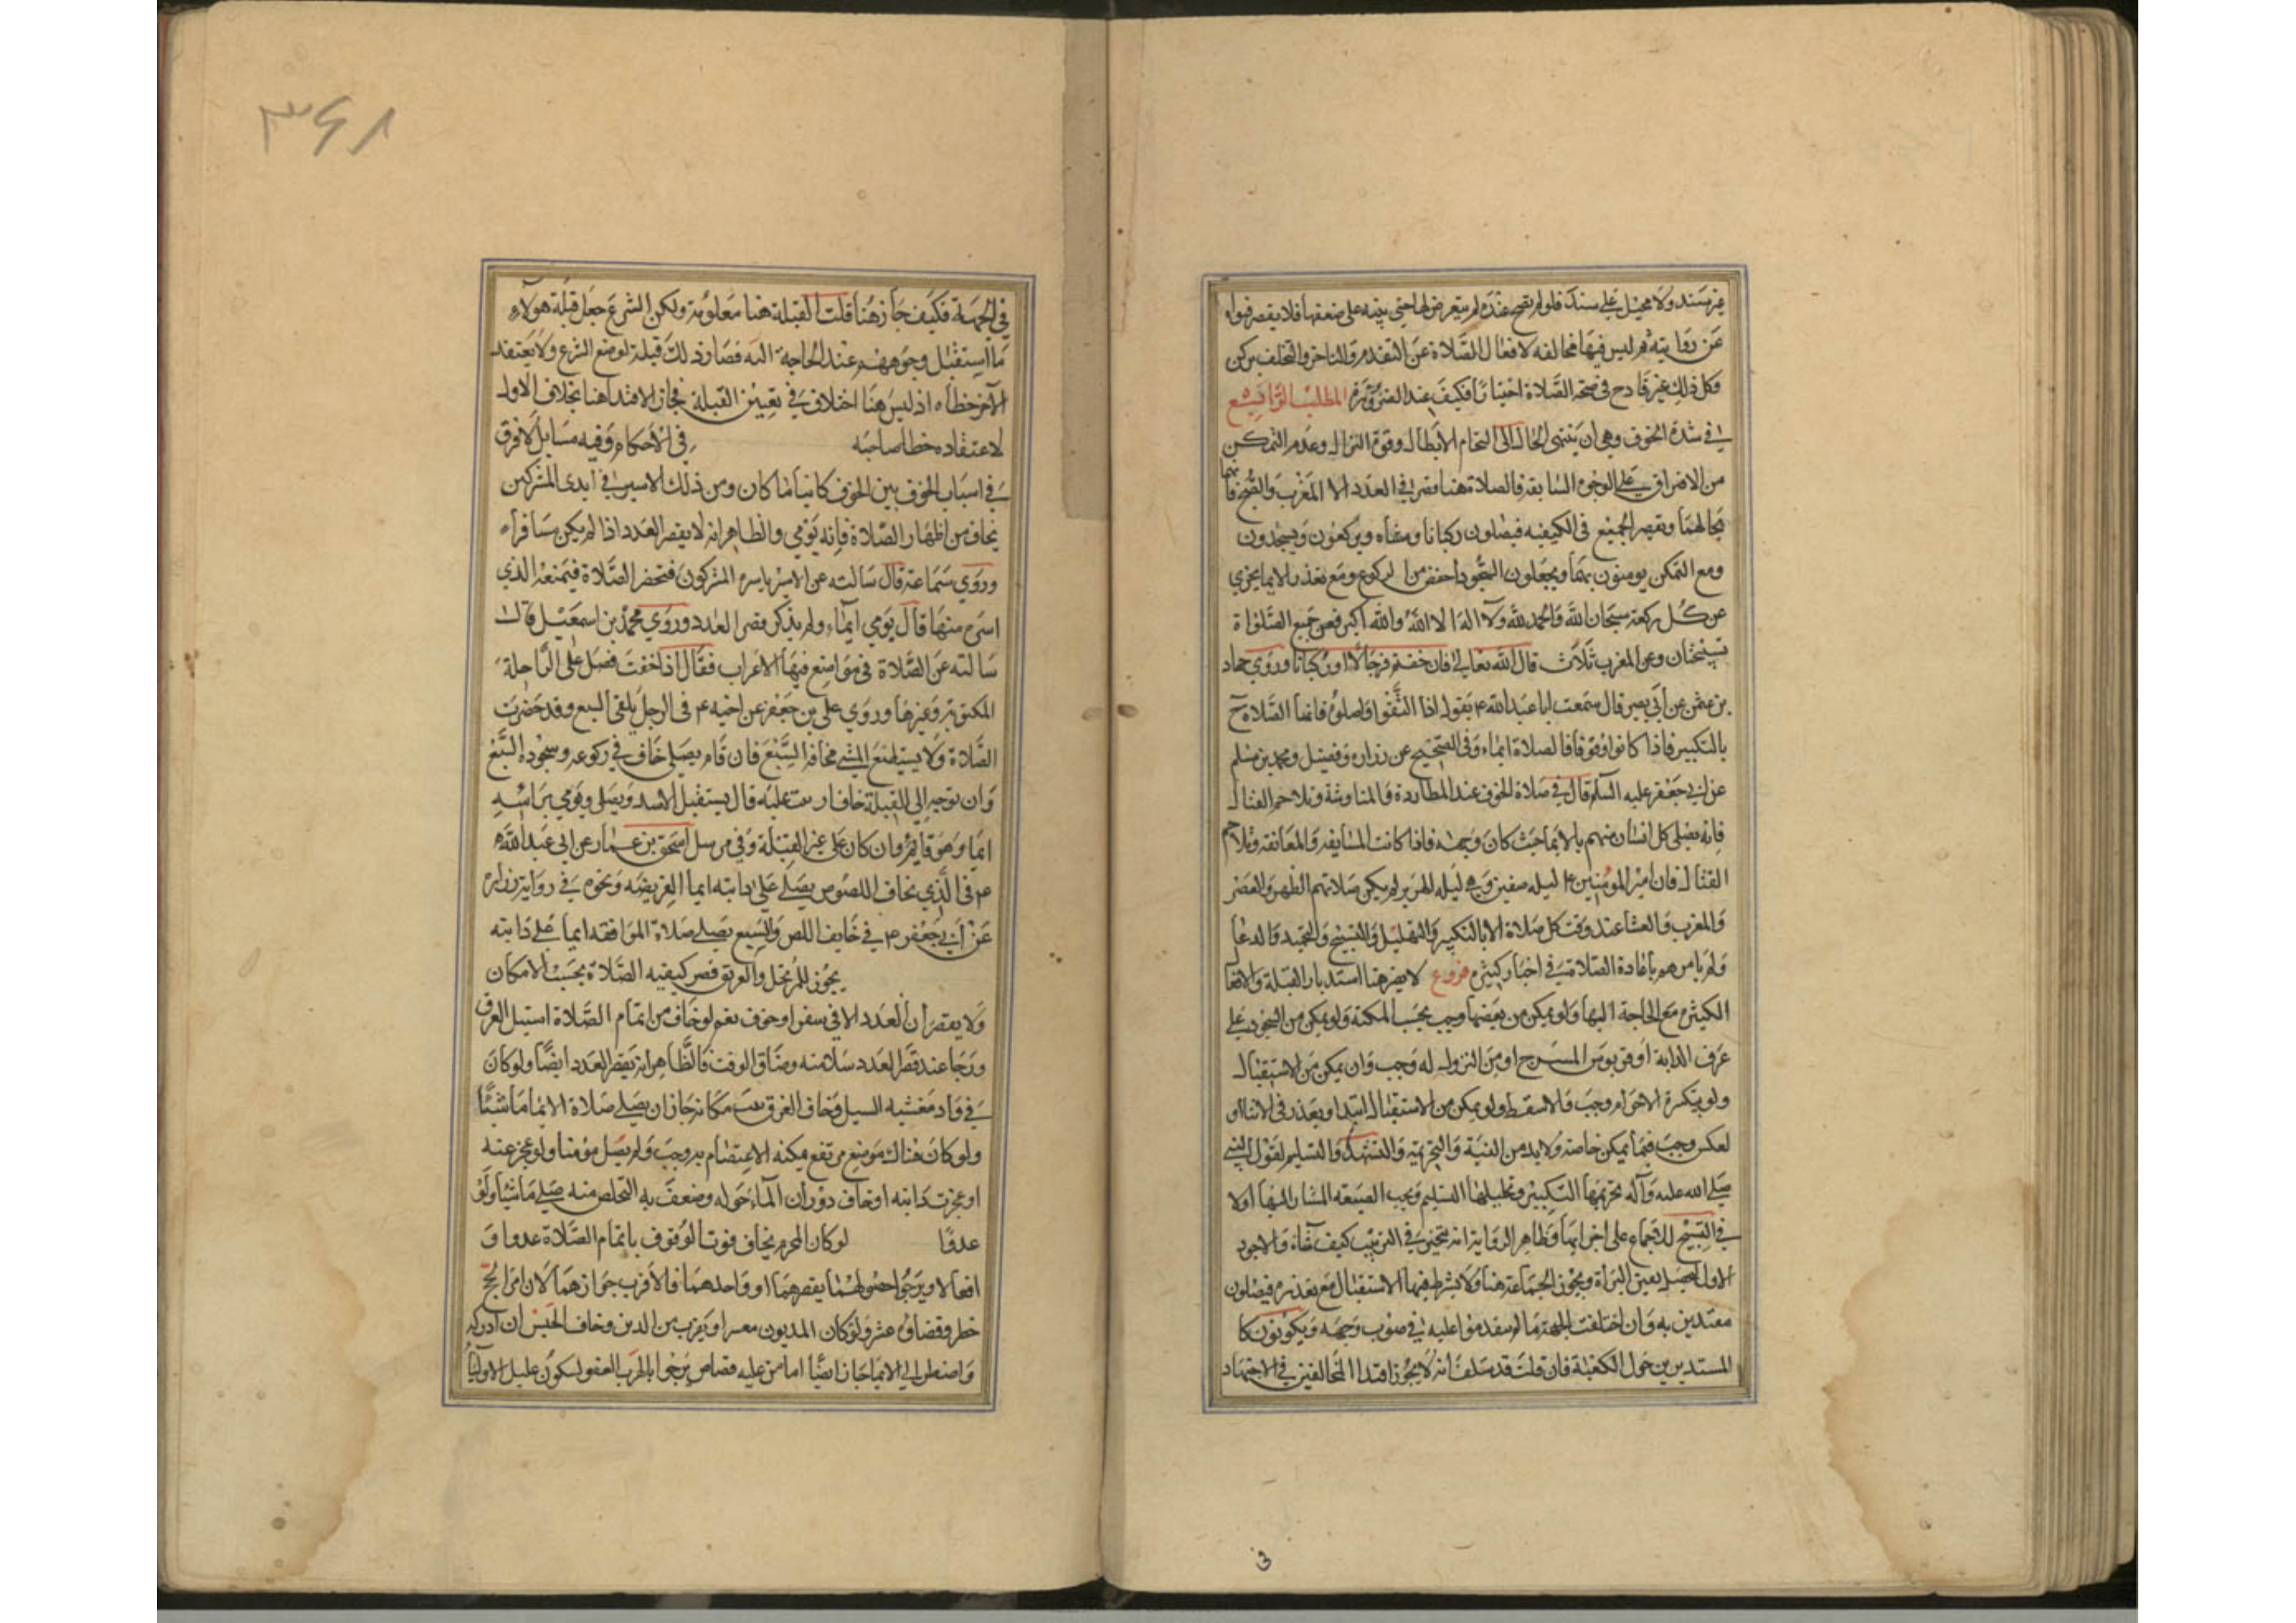 غير سند ولا محيل على سند فلو لم تصح عنده لم يتعرض لها حتى ينبه على ضعفها فلا يقصر فتواه
عن روايته ثم ليس فيها مخالفه لافعال الصلاة عن التقدم والتاخر والتخلف بركن
وكل ذلك غير قادح في صحه الصلاة اختيارا فكيف عند الضرورة المطلب الرابع
في شدة الخوف وهي ان ينتهي الحال الى التحام الابطال وقوة النزال وعدم التمكن
من الافتراق على الوجوه السابقة فالصلاة هنا مقصورة في العدد الا المغرب والصبح فانهما
بحالهما وتقصر الجميع في الكيفيه فيصلون ركبانا ومشاه ويركعون ويسجدون
ومع التمكن يومئون بهما ويجعلون السجود اخفض من الركوع ومع تعذر الايما يجزي
عن كل ركعة سبحان الله والحمد لله ولا اله الا الله والله اكبر فعن جميع الصلواة
تسبيحتان وعن المغرب ثلاث قال الله تعالى فان خفتم فرجالا او ركبانا وروي حماد
بن عثمن عن ابي بصير قال سمعت ابا عبد الله ع يقول اذا التقوا فاصلوا فانما الصلاة ح
بالتكبير فاذا كانوا وقوفا فالصلاة ايماء وفي الصحيح عن زراره وفضيل ومحمد بن مسلم
عن ابي جعفر عليه السلم قال في صلاة الخوف عند المطاردة والمناوشة وتلاحم القتال
فانه يصلي كل انسان منهم بالايما حيث كان وجهه فاذا كانت المسايفه والمعانقة وتلاحم
القتال فان امير المومنين ع ليله صفين وهي ليله الهرير لم يكن صلاتهم الظهر والعصر
والمغرب والعشا عند وقت كل صلاة الا بالتكبير والتهليل والتسبيح والتحميد والدعا
ولم يامرهم باعادة الصلاة في اخبار كثيرة فروع لا يضر هنا استدبار القبلة والافعال
الكثيرة مع الحاجة اليها ولو تمكن من بعضها وجب بحسب المكنة ولو تمكن من السجود على
عرف الدابة او قربوس السرج او من النزول له وجب وان تمكن من الاستقبال
ولو بتكبيرة الاحرام وجب والا سقط ولو تمكن من الاستقبال ابتدا وتعذر في الاثنا او
لعكس وجب فيما يمكن خاصة ولا بد من النية والتحريمة والتشهد والتسليم لقول النبي
صلى الله عليه وآله تحريمها التكبير وتحليلها التسليم ويجب الصيغه المشار اليها اولا
في التسبيح للاجماع على اجزايها وظاهر الرواية انه يتخير في الترتيب كيف شاء والاجود
الاول ليحصل يقين البراة ويجوز الجماعة هنا ولا يشترط فيها الاستقبال مع تعذره فيصلون
مقتدين به وان اختلفت الجهة ما لم يتقدموا عليه في صوب وجهه ويكونون كا
المستديرين حول الكعبة فان قلت قد سلف انه لا يجوز اقتدا المخالفين في الاجتهاد
ى
٣٤٨
في الجهة فكيف جاز هنا قلت القبلة هنا معلومة ولكن الشرع جعل قبلة هولاء
ما استقبل وجوههم عند الحاجة اليه فصار ذلك قبلة لوضع الشرع ولا يعتقد
الآخر خطاه اذ ليس هنا اختلاف في تعيين القبلة فجاز الاقتدا هنا بخلاف الاول
لاعتقاده خطا صاحبه في الاحكام وفيه مسايل لا فرق
في اسباب الخوف بين الخوف كاينا ما كان ومن ذلك الاسير في ايدي المشركين
يخاف من اظهار الصلاة فانه يومي والظاهر انه لا يقصر العدد اذا لم يكن مسافرا
وروي سماعة قال سالته عن الاسير ياسره المشركون فتحضر الصلاة فيمنعه الذي
اسره منها قال يومي ايماء ولم يذكر قصر العدد وروي محمد بن اسمعيل قال
سالته عن الصلاة في مواضع فيها الاعراب فقال اذا خفت فصل على الراحلة
المكتوبة وغيرها وروي علي بن جعفر عن اخيه ع في الرجل يلقى السبع وقد حضرت
الصلاة ولا يستطيع المشي مخافة السبع فان قام يصلي خاف في ركوعه وسجوده السبع
وان توجه الى القبلة خاف ان يثب عليه قال يستقبل الاسد ويصلي ويومي براسه
ايما وهو قايم وان كان على غير القبلة وفي مرسل اسحق بن عمار عن ابي عبد الله
ع في الذي يخاف اللصوص يصلي على دابته ايما الفريضه ونحوه في رواية زراره
عن ابي جعفر ع في خايف اللص والسبع يصلي صلاة المواقفه ايما على دابته
يجوز للمرتحل والغريق قصر كيفيه الصلاة بحسب الامكان
ولا يقصران العدد الا في سفر او خوف نعم لو خاف من اتمام الصلاة استيلا الغرق
ورجا عند قصر العدد سلامته وضاق الوقت فالظاهر انه يقصر العدد ايضا ولو كان
في واد مغشيه السيل وخاف الغرق ثبت مكانه جاز ان يصلي صلاة الايما ماشيا
ولو كان هناك موضع مرتفع يمكنه الاعتصام به وجب ولم يصل مومئا ولو عجز عنه
او عجزت دابته او خاف دوران الماء حوله وضعف به التخلص منه صلى ماشيا ولو
عدوًا لو كان المحرم يخاف فوت الوقوف باتمام الصلاة عددا و
افعالا ويرجوا حصولهما بقصرهما او واحدهما فالاقرب جوازهما لان امر الحج
خطر وقضاوه عسر ولو كان المديون معسرا ويهرب من الدين وخاف الحبس ان ادركه
واضطر الى الايما جاز ايضًا اما من عليه قصاص يرجوا بالهرب العفو لسكون غليل الاوليا